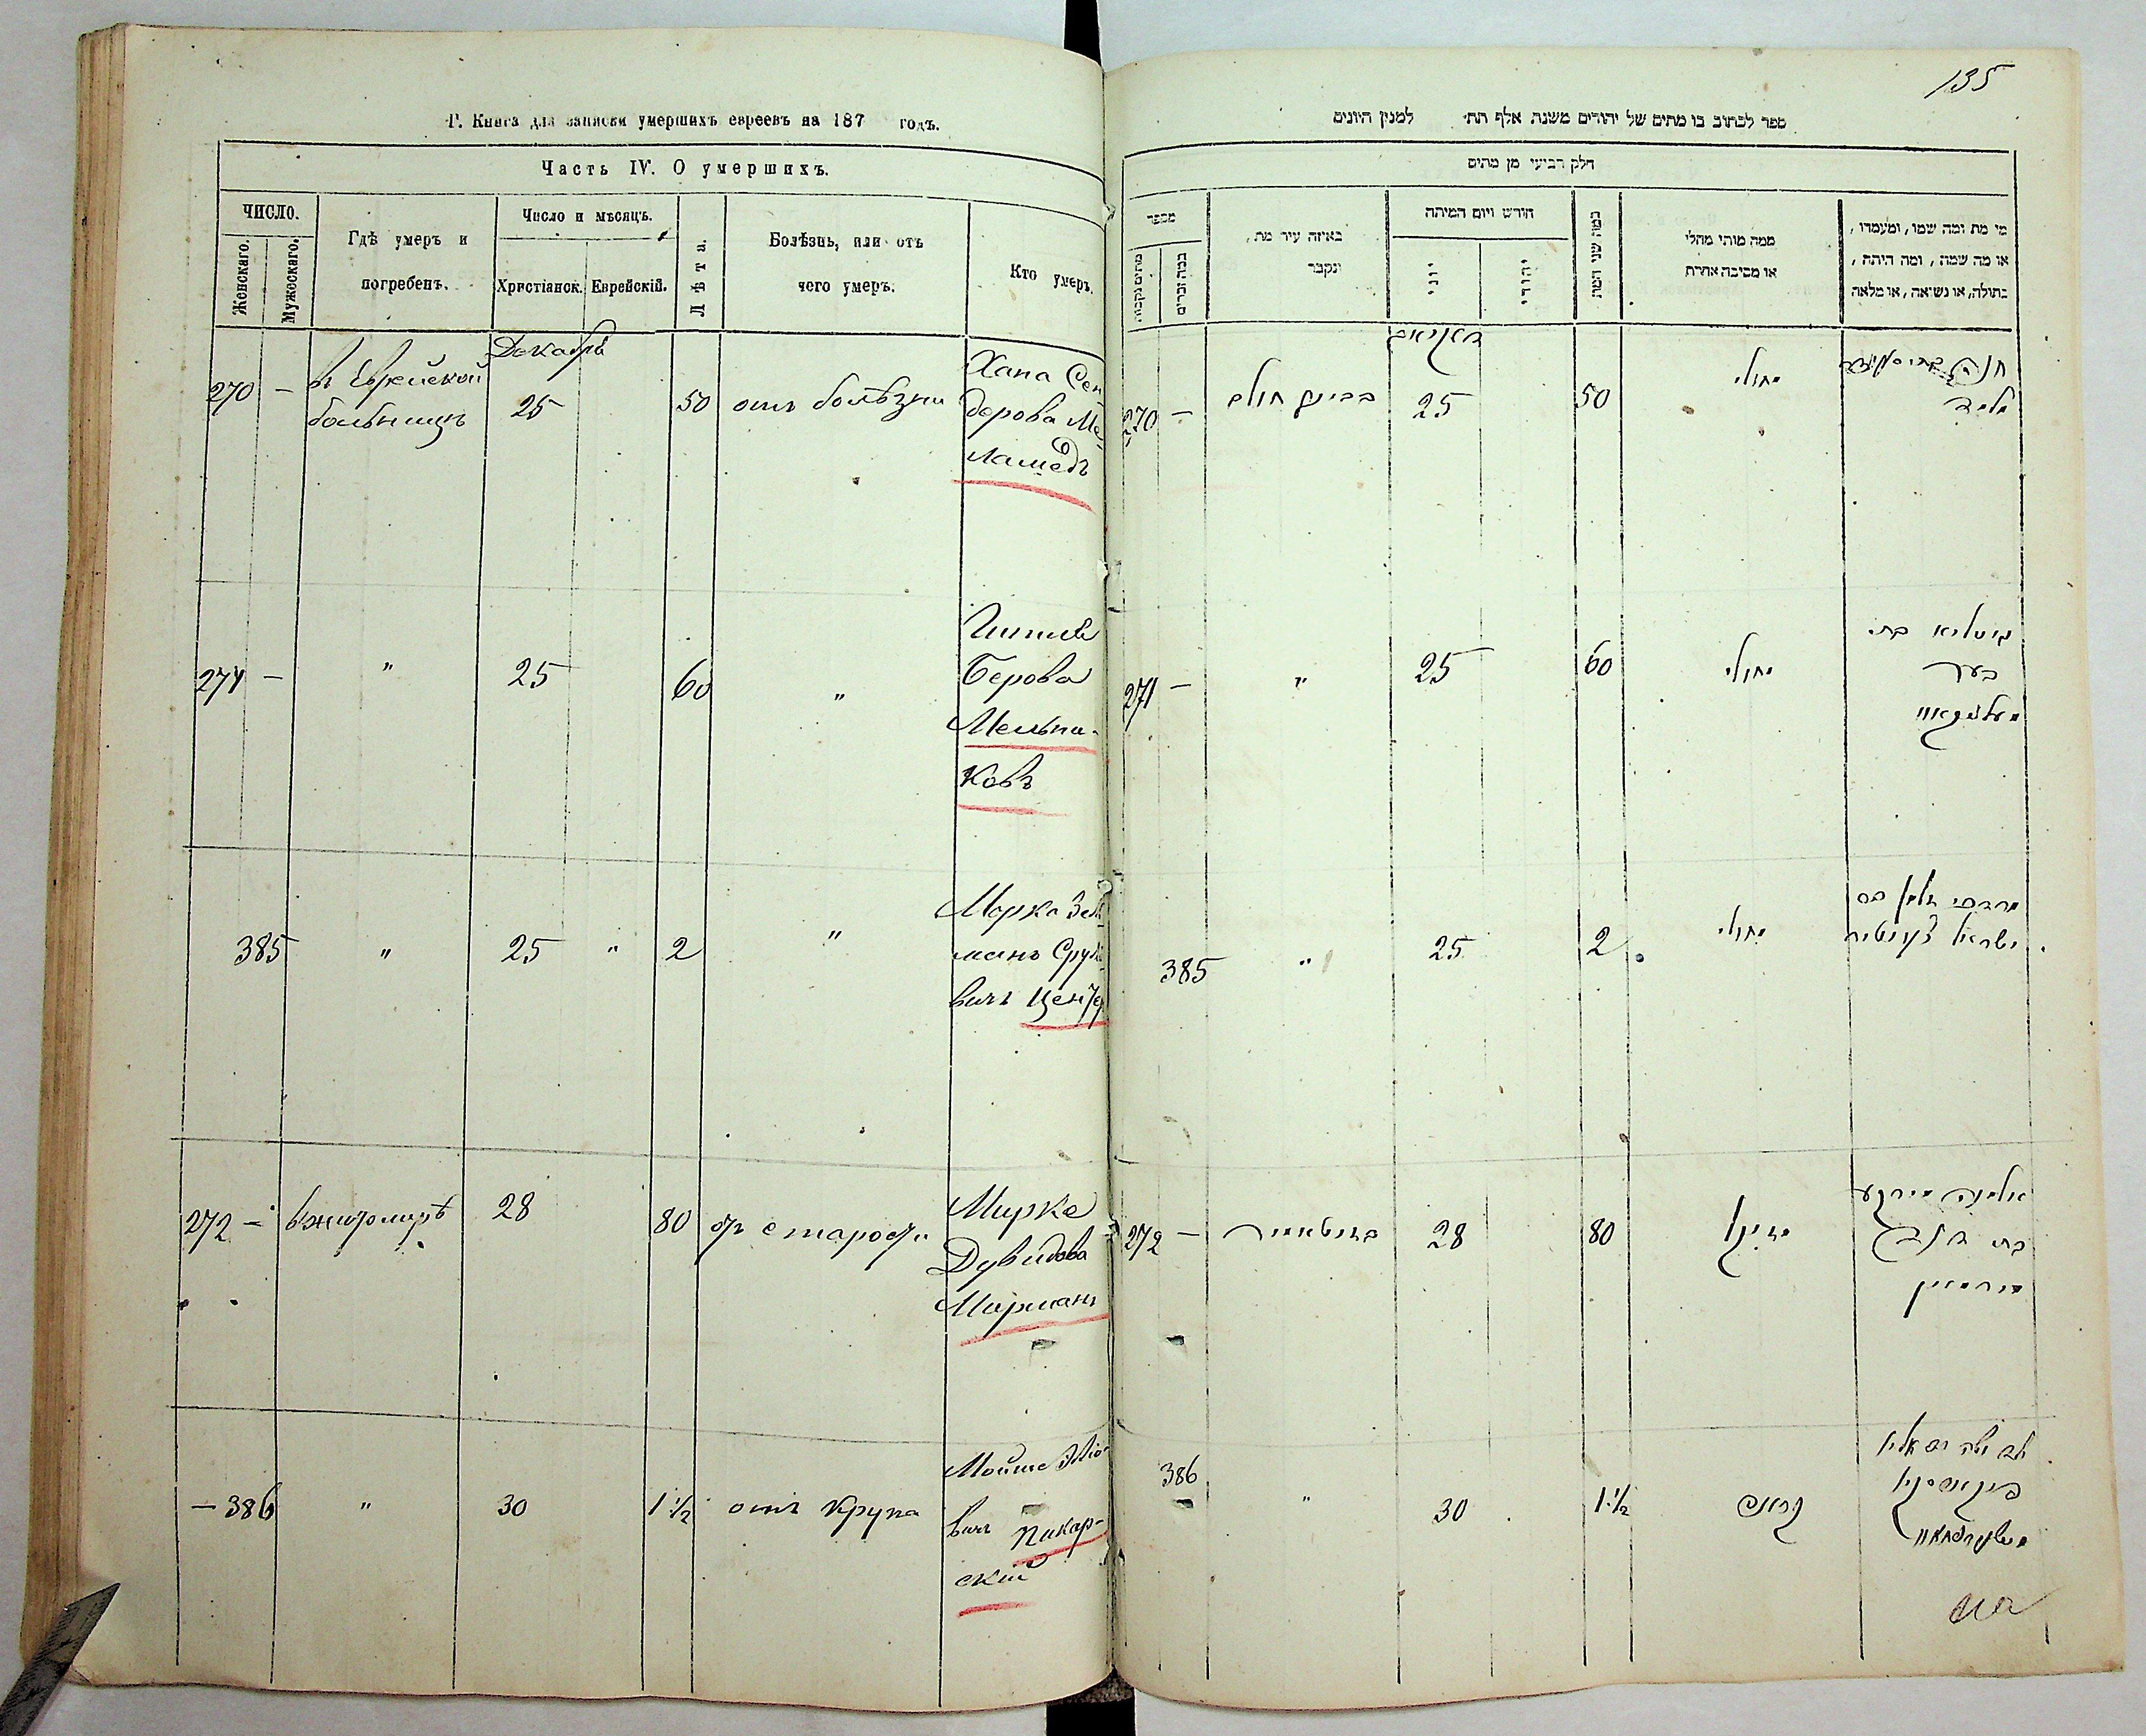 Г. Книга для записки умершихъ евреевъ на 187 годъ.
Часть IV. О умершихъ.
ЧИСЛО.
Женскаго.
Мужескаго.
Гдѣ умеръ и
погребенъ.
Число и мѣсяцъ.
Христіанск.
Еврейскій.
Лѣта.
Болѣзнь, или отъ
чего умеръ.
Кто умеръ.
Декабрь
270 — в Еврейской 25 50 отъ болѣзни Хана Сен
больницѣ дерова Ме-
ламедъ
271 — " 25 60 "
Берова
Мельни-
ковъ
385 " 25 " 2 " Морко Зель
манъ Срул
вичъ Центер
272 — в Житомирѣ 28 80 отъ старости Мирка
Дувидова
Мирманъ
— 386 " 30 1 1/2 отъ крупа Мойше
вичъ Пикар-
скій
135
ספר לכתוב בו מתים של יהודים משנת אלף תת״ למנין היונים
חלק רביעי מן מתים
מספר
מתים נקבות
כמה זכרים
באיזה עיר מת,
ונקבר
חודש ויום המיתה
יוני
יהודי
כמה שני המת
ממה מותו מחלי
או מסיבה אחרת
מי מת ומה שמו, ומעמדו,
או מה שמה, ומה היתה,
בתולה, או נשואה, או מלאה
270 — בבית חולים 25 50 מחולי
271 — " 25 60 מחולי
בער
385 " 25 2 מחולי
ישראל צענטער
272 — 28 80 מזיקנ
מירמאן
386 " 30 1 1/2 קרופ